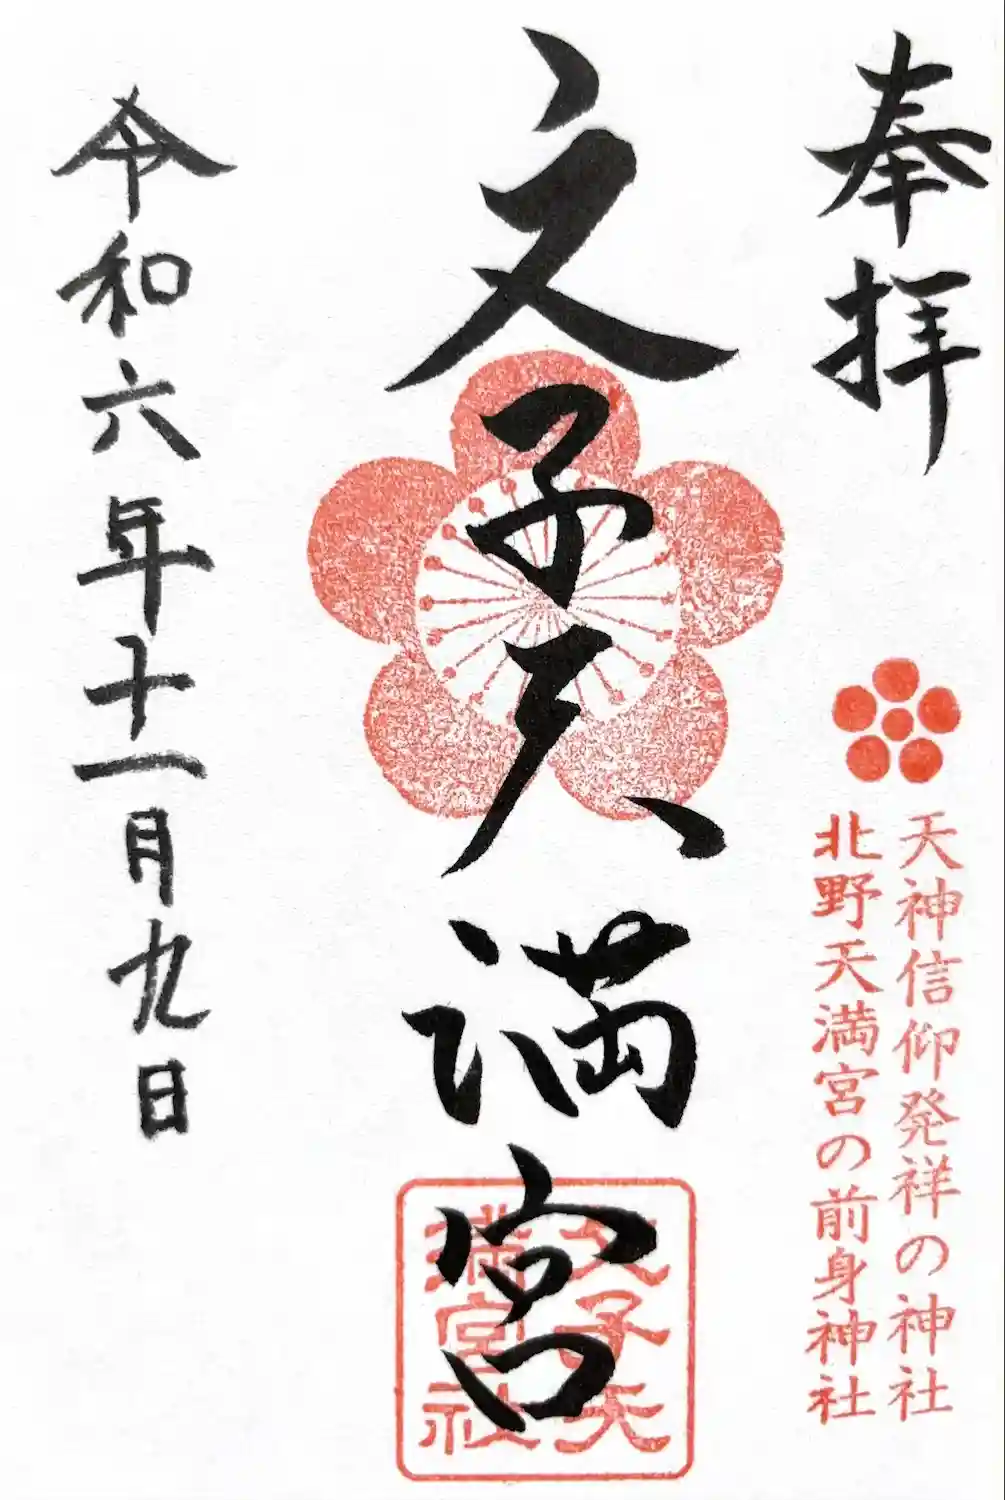 奉拝
天神信仰発祥の神社
北野天満宮の前身神社
文子天満宮
文子天
満宮社
令和六年十一月九日